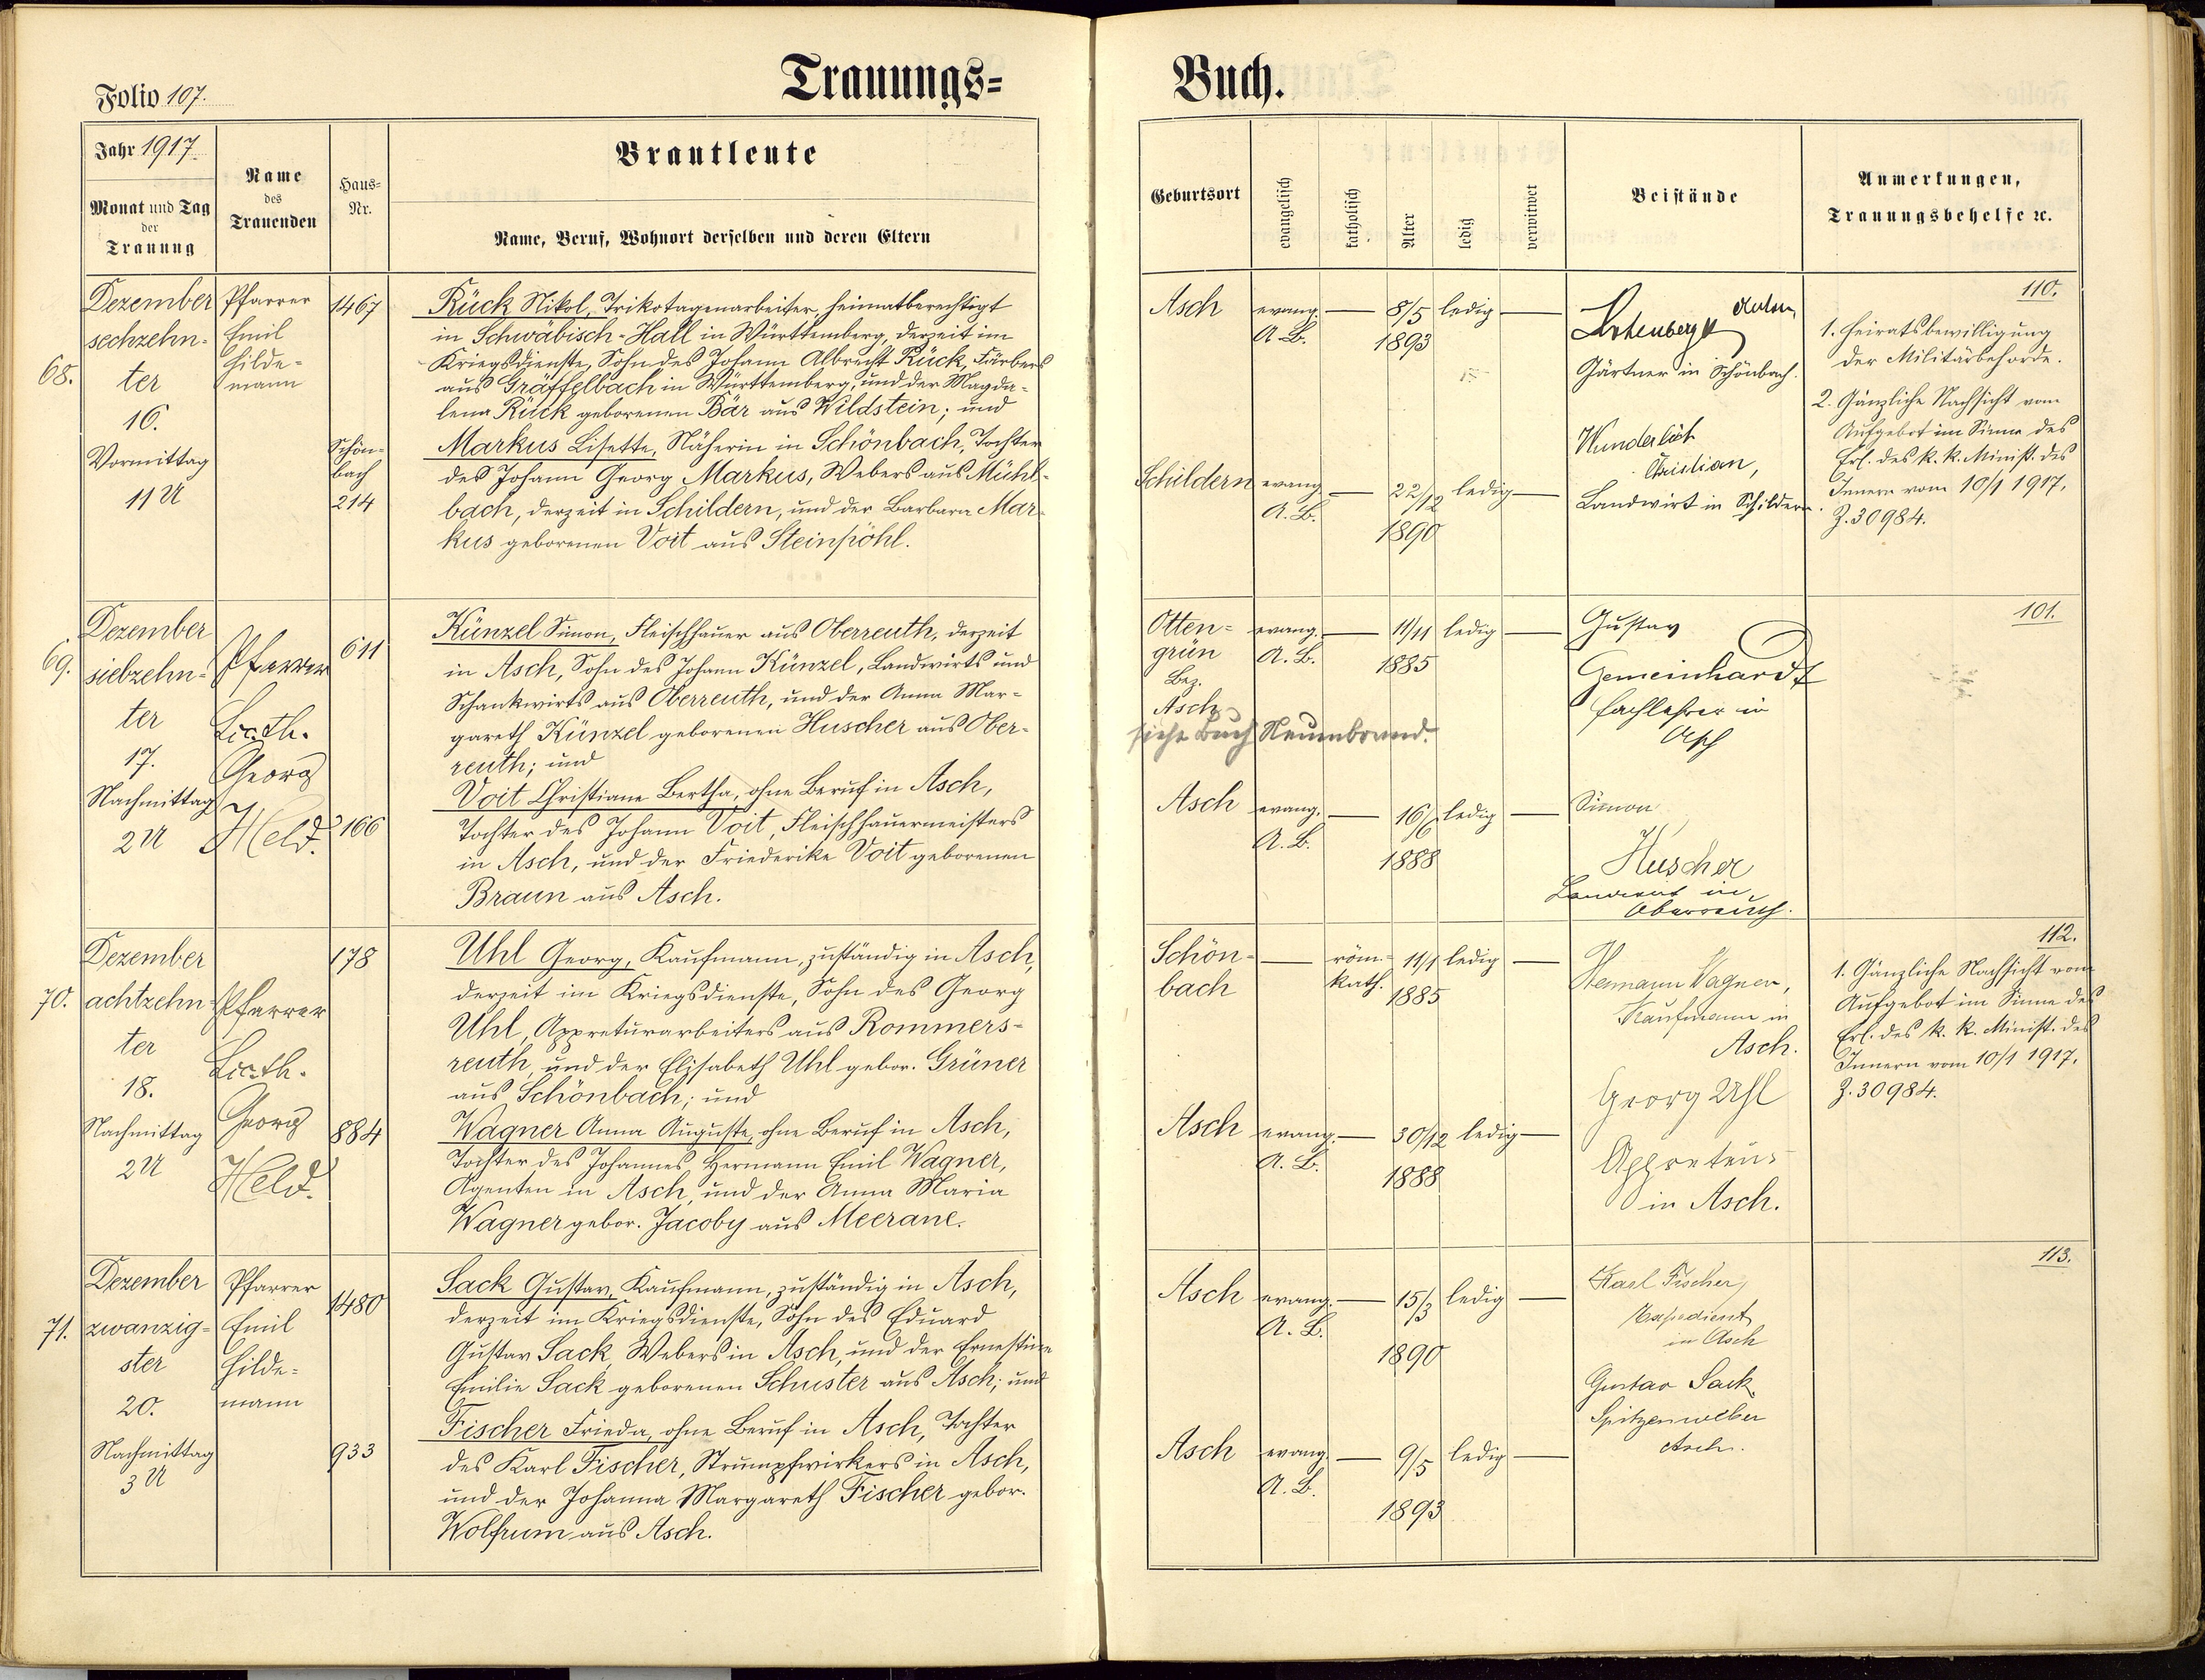 Trauungs=
Buch.
Folio 107.
Jahr 1917.
Monat und Tag
der
Trauung
Name
des
Trauenden
Haus=
Nr.
Brautleute
Name, Beruf, Wohnort derselben und deren Eltern
Geburtsort
evangelisch
katholisch
Alter
ledig
verwitwet
Beistände
Anmerkungen,
Trauungsbehelfe ⁊c.
68.
Dezember
sechzehn-
ter
16.
Vormittag
11 U
Pfarrer
Emil
Hilde-
mann
1467
Schön-
bach
214
Rück Nikol, Trikotagenarbeiter, heimatberechtigt
in Schwäbisch-Hall in Württemberg, derzeit im
Kriegsdienste, Sohn des Johann Albrecht Rück, Färbers
aus Gräffelbach in Württemberg, und der Magda-
lena Rück geborenen Bär aus Wildstein; und
Markus Lisette, Näherin in Schönbach, Tochter
des Johann Georg Markus, Webers aus Mühl-
bach, derzeit in Schildern, und der Barbara Mar-
kus geborenen Voit aus Steinpöhl.
Asch
evang.
A. B.
8/5
1893
ledig
Schildern
evang.
A. B.
22/12
1890
ledig
Anton
Gärtner in Schönbach.
Wunderlich
Christian,
Landwirt in Schildern.
110.
1. Heiratsbewilligung
der Militärbehörde.
2. Gänzliche Nachsicht vom
Aufgebot im Sinne des
Erl. des k. k. Minist. des
Innern vom 10/1 1917,
Z. 30984.
69.
Dezember
siebzehn-
ter
17.
Nachmittag
2 U
Pfarrer
Lic. th.
Georg
Held.
611
166
Künzel Simon, Fleischhauer aus Oberreuth, derzeit
in Asch, Sohn des Johann Künzel, Landwirts und
Schankwirts aus Oberreuth, und der Anna Mar-
gareth Künzel geborenen Huscher aus Ober-
reuth; und
Voit Christiane Bertha, ohne Beruf in Asch,
Tochter des Johann Voit, Fleischhauermeisters
in Asch, und der Friederike Voit geborenen
Braun aus Asch.
Otten-
grün
Bez.
Asch
evang.
A. B.
11/11
1885
ledig
siehe Buch Neuenbrand.
Asch
evang.
A. B.
16/6
1888
ledig
Gustav
Gemeinhardt
Fachlehrer in
Asch
Simon
Huscher
Landwirt in
Oberreuth.
101.
70.
Dezember
achtzehn-
ter
18.
Nachmittag
2 U
Pfarrer
Lic. th.
Georg
Held.
178
884
Uhl Georg, Kaufmann, zuständig in Asch,
derzeit im Kriegsdienste, Sohn des Georg
Uhl, Appreturarbeiters aus Rommers-
reuth, und der Elisabeth Uhl gebor. Grüner
aus Schönbach; und
Wagner Anna Auguste, ohne Beruf in Asch,
Tochter des Johannes Hermann Emil Wagner,
Agenten in Asch, und der Anna Maria
Wagner gebor. Jacoby aus Meerane.
Schön-
bach
röm.-
kath.
11/1
1885
ledig
Asch
evang.
A. B.
30/12
1888
ledig
Hermann Wagner,
Kaufmann in
Asch.
Georg Uhl
Appreteur
in Asch.
112.
1. Gänzliche Nachsicht vom
Aufgebot im Sinne des
Erl. des k. k. Minist. des
Innern vom 10/1 1917,
Z. 30984.
71.
Dezember
zwanzig-
ster
20.
Nachmittag
3 U
Pfarrer
Emil
Hilde-
mann
1480
933
Sack Gustav, Kaufmann, zuständig in Asch,
derzeit im Kriegsdienste, Sohn des Eduard
Gustav Sack, Webers in Asch, und der Ernestine
Emilie Sack geborenen Schuster aus Asch; und
Fischer Frieda, ohne Beruf in Asch, Tochter
des Karl Fischer, Strumpfwirkers in Asch,
und der Johanna Margareth Fischer gebor.
Wolfrum aus Asch.
Asch
evang.
A. B.
15/3
1890
ledig
Asch
evang.
A. B.
9/5
1893
ledig
Karl Fischer,
Expedient
in Asch
Gustav Sack
Spitzenweber
Asch.
113.